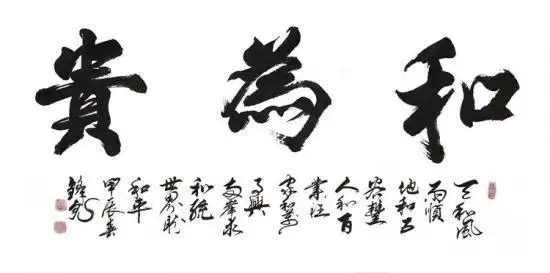 和為貴
天和風
雨順
地和五
谷豐
人和百
業旺
家和萬
事興
两岸求
和統
世界盼
和平
甲辰春